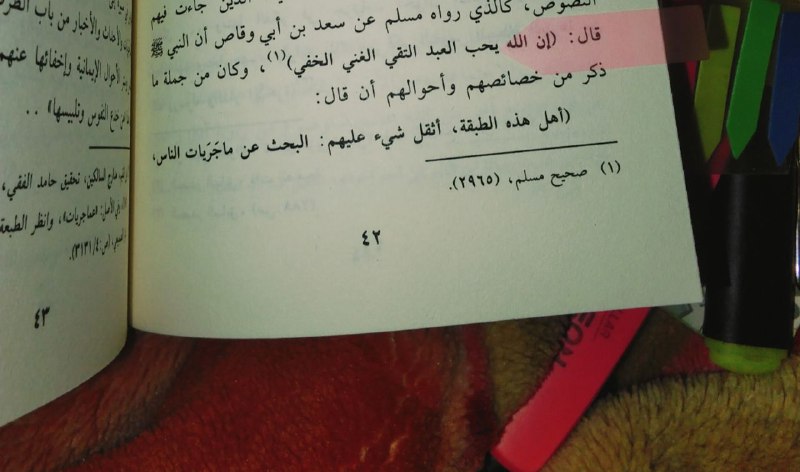 النصوص، كالذي رواه مسلم عن سعد بن أبي وقاص أن النبي ﷺ
قال: (إن الله يحب العبد التقي الغني الخفي)(١)، وكان من جملة ما
ذكر من خصائصهم وأحوالهم أن قال:
(أهل هذه الطبقة، أثقل شيء عليهم: البحث عن ماجَرَيات الناس،
(١) صحيح مسلم، (٢٩٦٥).
٤٢
الأحوال الإيمانية وإخفائها عنهم
النفوس وتلبيسها» ..
مدارج السالكين، تحقيق حامد الفقي،
«ماجريات»، وانظر الطبعة
٤٣